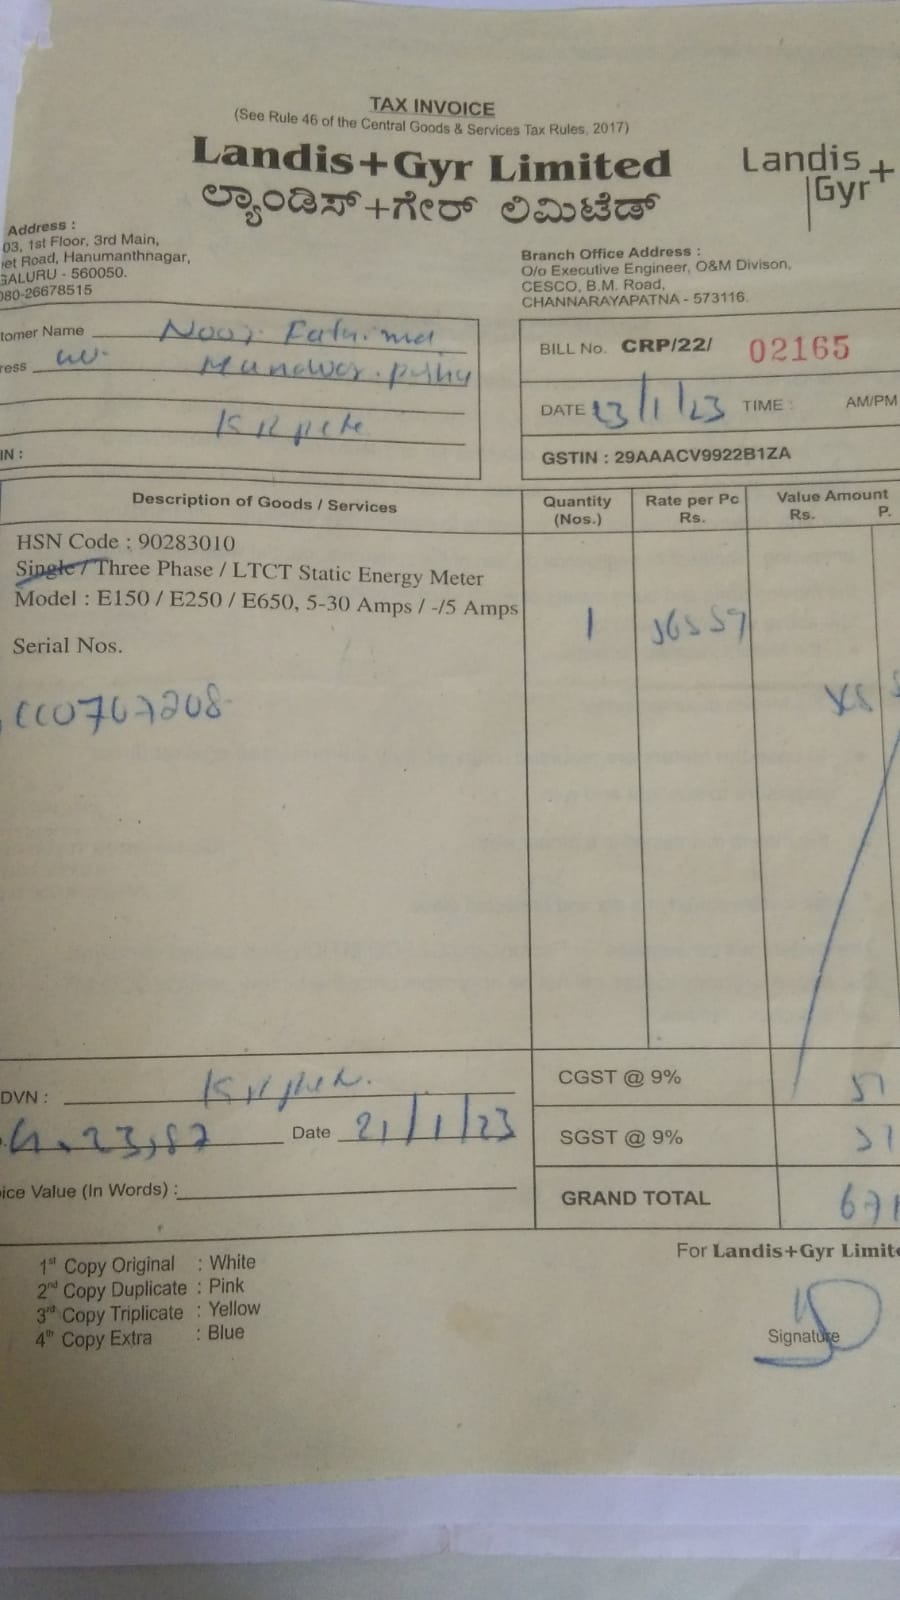 TAX INVOICE
(See Rule 46 of the Central Goods & Services Tax Rules, 2017)
Landis+Gyr Limited
ಲ್ಯಾಂಡಿಸ್+ಗೇರ್ ಲಿಮಿಟೆಡ್
Landis+
Gyr
Address :
03, 1st Floor, 3rd Main,
et Road, Hanumanthnagar,
GALURU - 560050.
080-26678515
Branch Office Address :
O/o Executive Engineer, O&M Divison,
CESCO, B.M. Road,
CHANNARAYAPATNA - 573116.
tomer Name
ress
K R pete
IN :
BILL No. CRP/22/ 02165
DATE 23/1/23 TIME : AM/PM
GSTIN : 29AAACV9922B1ZA
Description of Goods / Services Quantity (Nos.) Rate per Pc Rs. Value Amount Rs. P.
HSN Code : 90283010
Single / Three Phase / LTCT Static Energy Meter
Model : E150 / E250 / E650, 5-30 Amps / -/5 Amps
1
Serial Nos.
DVN :
CGST @ 9%
23,87 Date 21/1/23
SGST @ 9%
ice Value (In Words) :
GRAND TOTAL 671
1st Copy Original : White
2nd Copy Duplicate : Pink
3rd Copy Triplicate : Yellow
4th Copy Extra : Blue
For Landis+Gyr Limite
Signature